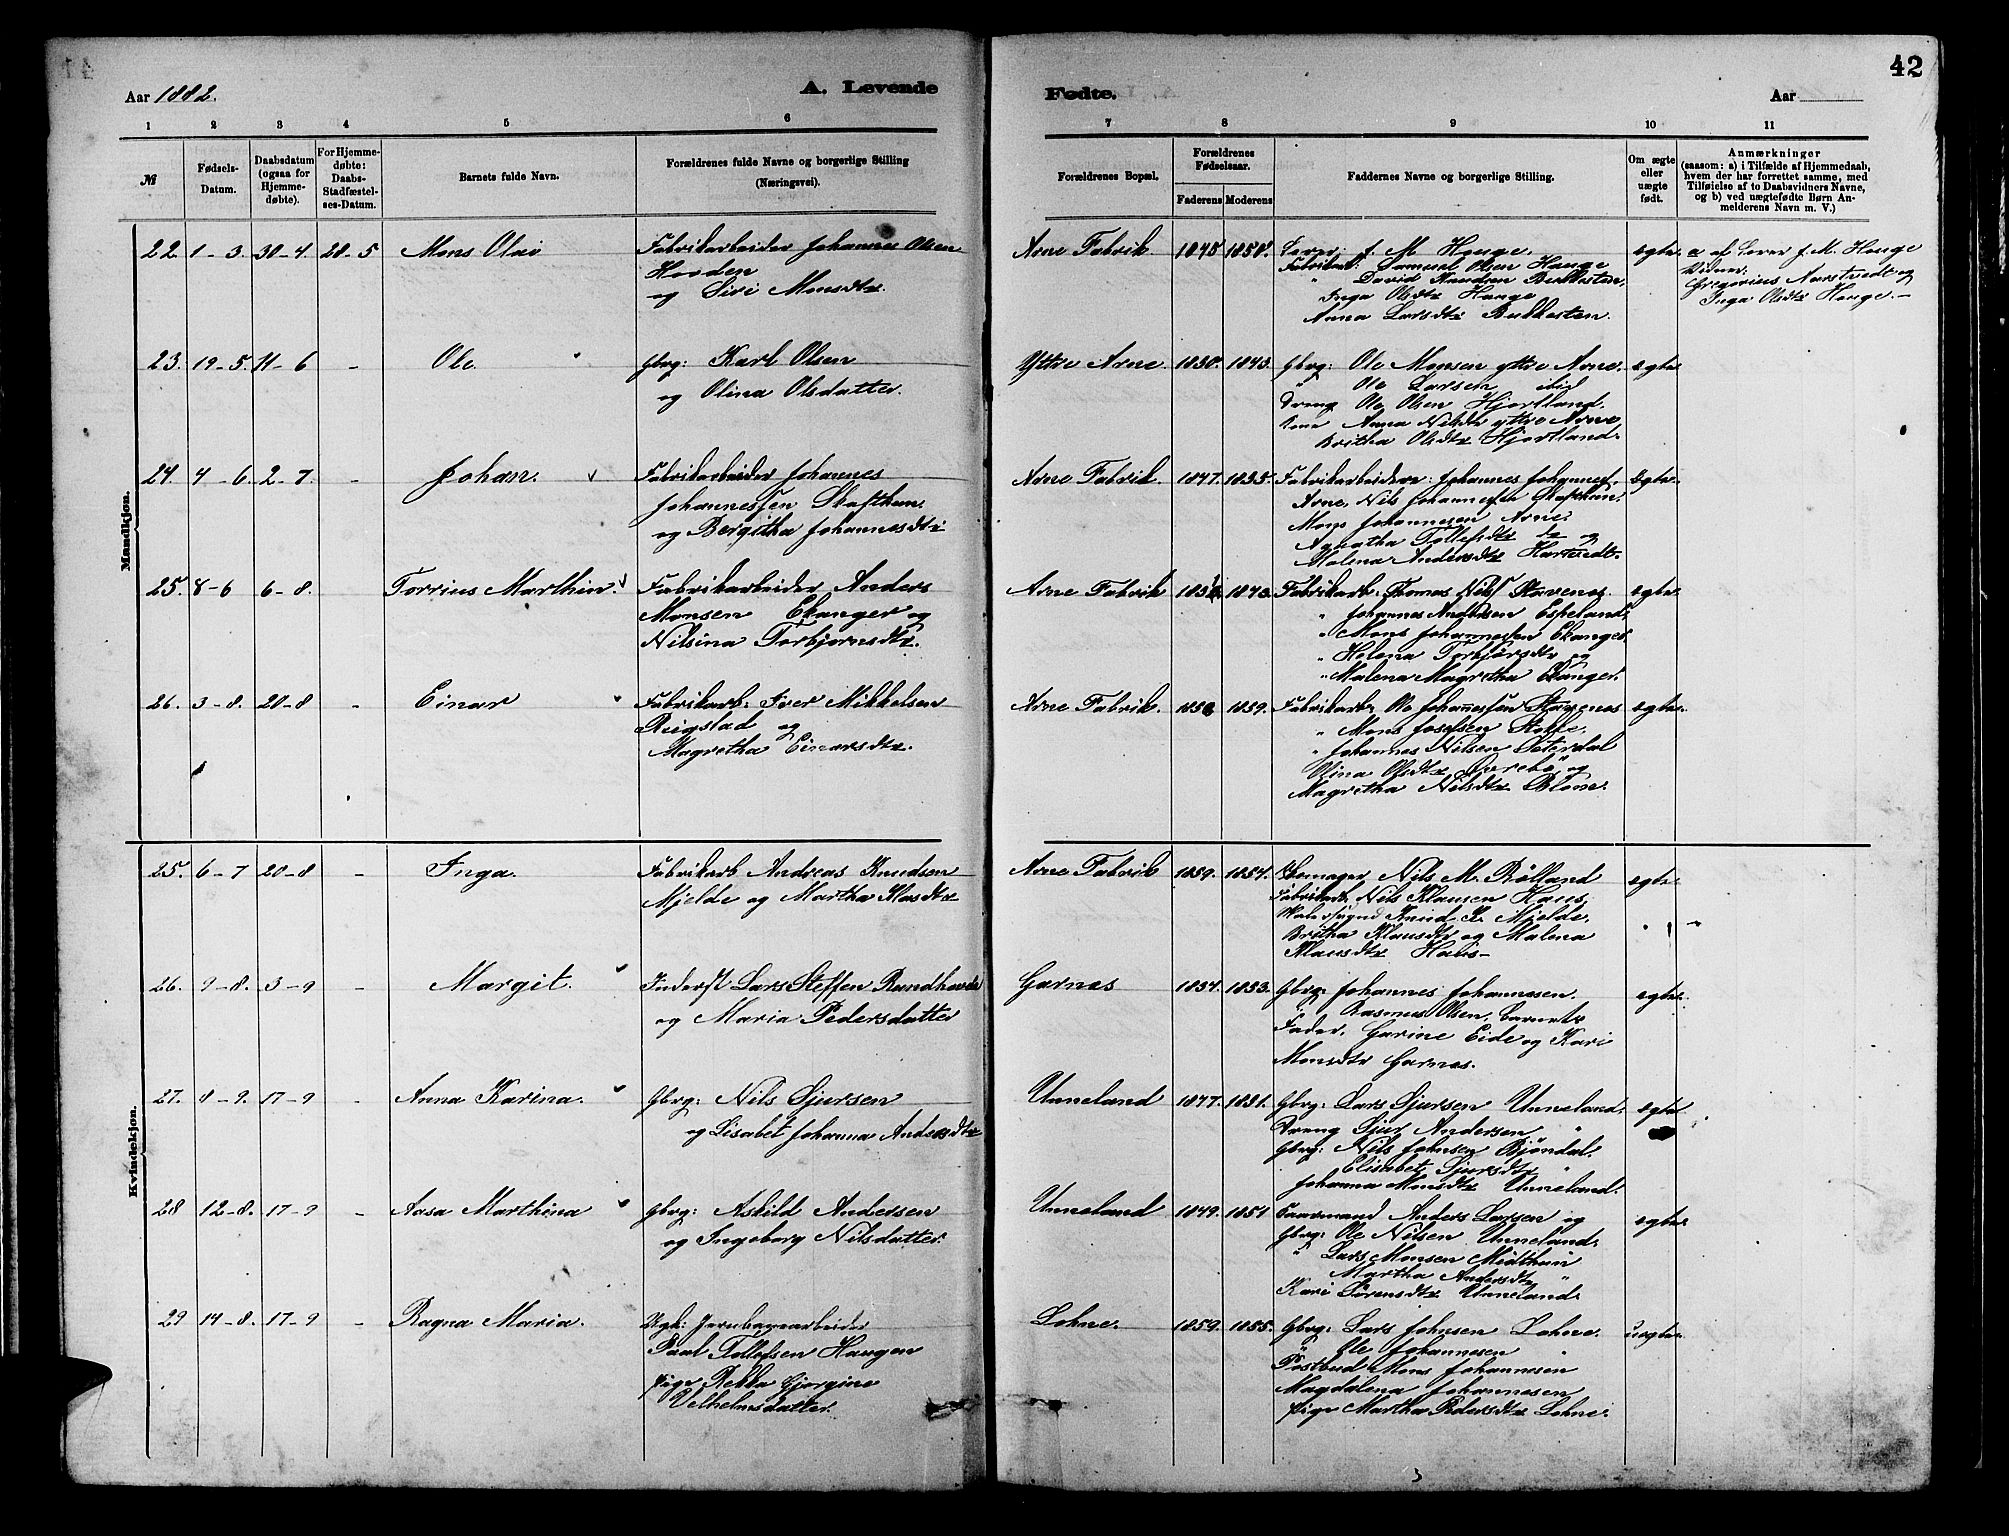 42
Aar 1882.
A. Levende
Fødte.
Aar
1 2 3 4 5 6 7 8 9 10 11
№
Fødsels-
Datum.
Daabsdatum
(ogsaa for
Hjemme-
døbte).
For Hjemme-
døbte:
Daabs-
Stadfæstel-
ses-Datum.
Barnets fulde Navn.
Forældrenes fulde Navne og borgerlige Stilling
(Næringsvei).
Forældrenes Bopæl.
Forældrenes
Fødselsaar.
Faderens Moderens
Faddernes Navne og borgerlige Stilling.
Om ægte
eller
uægte
født.
Anmærkninger
(saasom: a) i Tilfælde af Hjemmedaab,
hvem der har forrettet samme, med
Tilføielse af to Daabsvidners Navne,
og b) ved uægtefødte Børn An-
melderens Navn m. V.)
Mandkjøn.
22. 1-3. 30-4 28-5 Mons Olai
Fabrikarbeider Johannes Olsen
Hovden
og Siri Monsdtr.
Arne Fabrik. 1845
Lærer J. M. Hauge.
Fabrikarb: Samuel Olsen Hauge
" David Knudsen Bukkesten,
Inga Olsdtr Hauge
Anna Larsdtr Bukkesten.
ægte.
a af Lærer J. M. Hauge
Vidner:
Gregorius Aarstvedt og
Inga Olsdtr Hauge.-
23. 19-5. 11-6 - Ole
Gbrg: Karl Olsen
og Olina Olsdatter.
Yttre Arne 1830. 1843.
Gbrg: Ole Monsen yttre Arne.
" Ole Larsen ibid
Dreng Ole Olsen Hjortland.
Kone Anna Nilsdtr yttre Arne,
Britha Olsdtr Hjortland.
ægte
24. 4-6. 2-7. - Johan.
Fabrikarbeider Johannes
Johannessen Skafthun.
og Bergitha Johannesdtr
Arne Fabrik 1847. 1855.
Fabrikarbeidere: Johannes Johannes.
Arne, Nils Johannessen Skafthun,
Mons Johannesen Arne.
Agatha Tollefsdtr og
Malena Andersdtr Hartvedt.
ægte.
25. 8-6 6-8. Torrius Marthin.
Fabrikarbeider Anders
Monsen Ekanger og
Nilsina Torbjornsdtr.
Arne Fabrik 1843.
Fabrikarb: Thomas Nils Stavenes
" Johannes Andersen Eskeland,
" Mons Johannessen Ekanger
" Helena Torbjørsdtr og
" Malena Magretha Ekanger.
ægte.
26. 3-8. 20-8 - Einar
Fabrikarb: Iver Mikkelsen
Reigstad og
Magretha Einarsdtr.
Arne Fabrik. 1859.
Fabrikarb: Ole Johannessen Stavenes
" Mons Josefsen Stokke,
" Johannes Nilsen Seterdal
Olina Olsdtr Dyrebø og
Magretha Nilsdtr Blom.
ægte.
Kvindekjøn.
25. 6-7 20-8 - Inga.
Fabrikarb Andreas Knudsen
Mjelde og Martha Klasdtr
Arne Fabrik 1859. 1854.
Skomager Nils M. Rølland
Fabrikarb: Nils Klausen Haus,
Knud K. Mjelde,
Britha Klausdtr og Malena
Klausdtr Haus-
ægte
26. 9-8. 3-9 - Margit.
Inderst Lars Steffen Rundhovde
og Maria Pedersdatter
Garnes 1854. 1853.
Gbrg: Johannes Johannesen.
" Rasmus Olsen, Barnets
Fader, Garine Eide og Kari
Monsdtr Garnes.
ægte.
27. 8-9. 17-9 - Anna Karina.
Gbrg: Nils Sjursen
og Lisabet Johanna Andersdtr
Unneland 1847. 1851.
Gbrg: Lars Sjursen Unneland.
Dreng Sjur Andersen "
Gbrg: Nils Johnsen Bjøndal.
Elisabet Sjursdtr "
Johanna Monsdtr Unneland.
ægte
28 12-8. 17-9 - Aasa Marthina
Gbrg: Askild Andersen
og Ingeborg Nilsdatter.
Unneland 1849. 1851
Faarmand Anders Larsen og
Gbrg: Ole Nilsen Unneland.
" Lars Monsen Midthun
Martha Andersdtr "
Kari Sørensdtr Unneland.
ægte
29 14-8. 17-9 - Ragna Maria.
Ugk: Jernbanearbeider
Paal Tollefsen Haugen
Pige Rekka Gjorgine
Velhelmsdatter.
Lohne. 1859. 1855.
Gbrg: Lars Johnsen Lohne.
" Ole Johannesen "
Postbud Mons Johannesen
Magdalena Johannesen
Pige Martha Pedersdtr Lohne.
uægte.